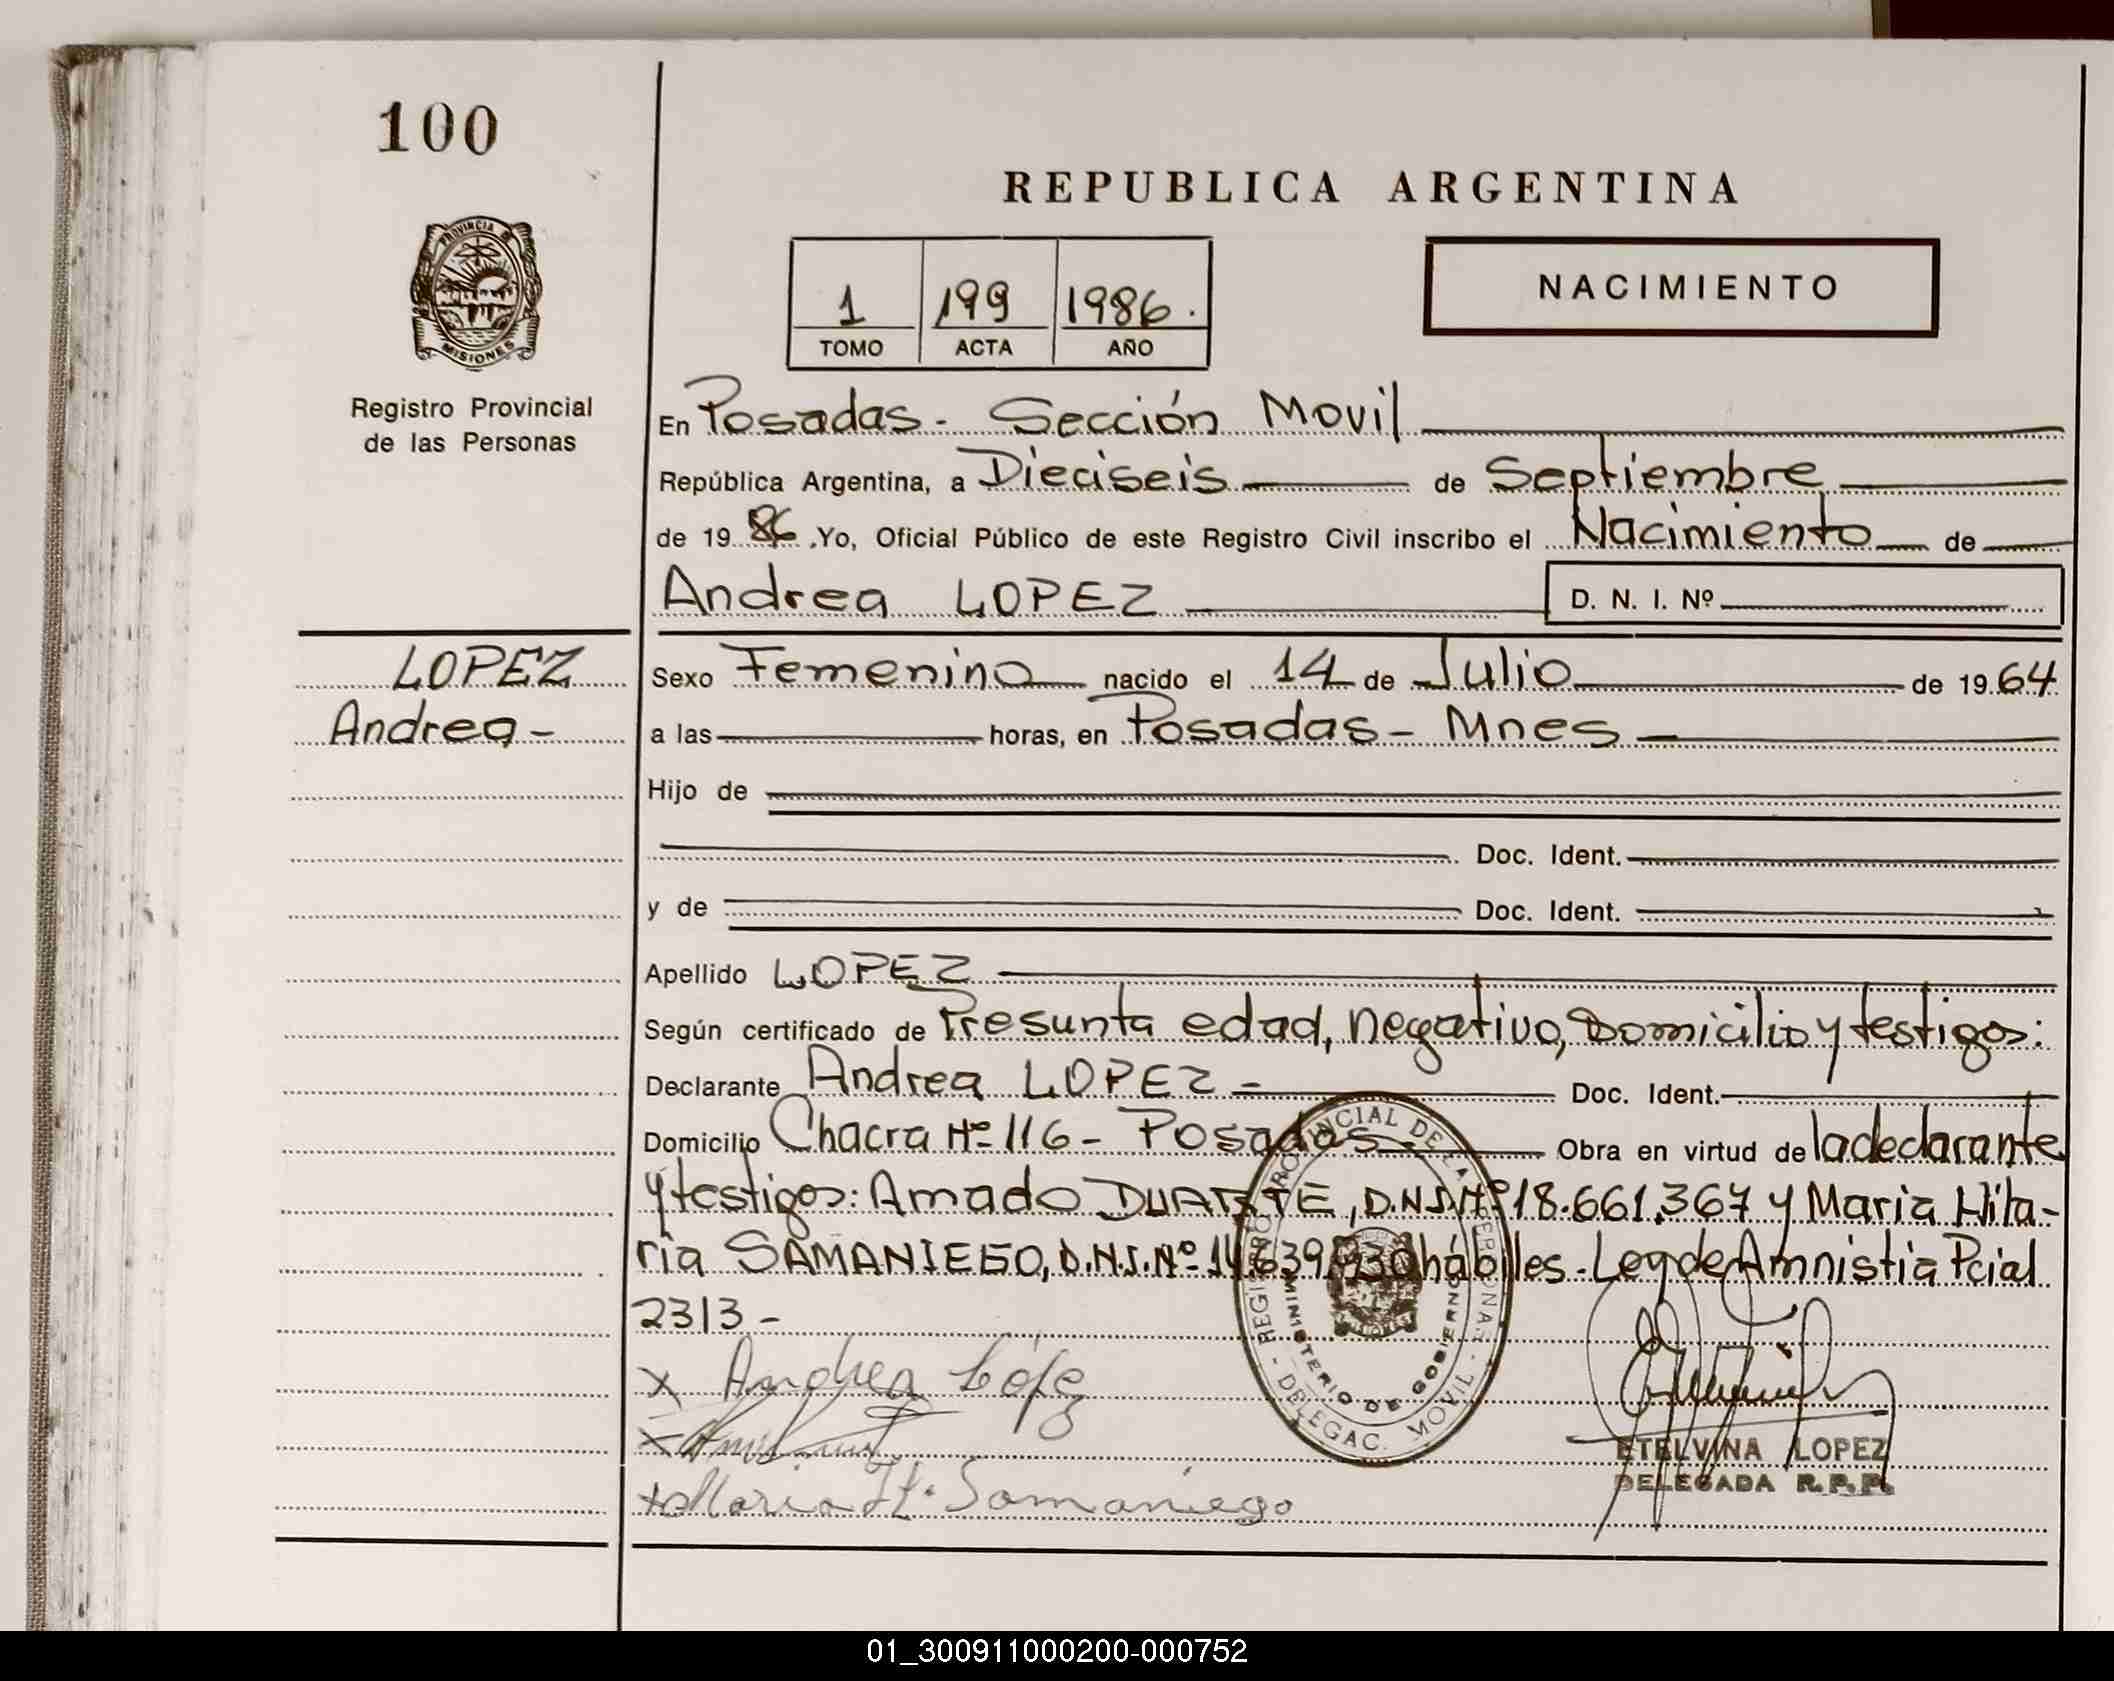 100
REPUBLICA ARGENTINA
PROVINCIA D
MISIONES
Registro Provincial
de las Personas
1 199 1986.
TOMO ACTA AÑO
NACIMIENTO
En Posadas - Sección Movil
República Argentina, a Dieciseis de Septiembre
de 19 86 .Yo, Oficial Público de este Registro Civil inscribo el Nacimiento de
Andrea LOPEZ D. N. I. Nº
LOPEZ
Andrea -
Sexo Femenino nacido el 14 de Julio de 19 64
a las horas, en Posadas - Mnes -
Hijo de
Doc. Ident.
y de Doc. Ident.
Apellido LOPEZ
Según certificado de Presunta edad, negativo, Domicilio y testigos:
Declarante Andrea LOPEZ - Doc. Ident.
Domicilio Chacra Nº 116 - Posadas Obra en virtud de la declarante
y testigos: Amado DUARTE, D.N.I. Nº 18.661.367 y Maria Hila-
ria SAMANIEGO, D.N.I. Nº hábiles. Ley de Amnistia Pcial
2313 -
x Andrea López
x
x Maria H. Samaniego
REGISTRO PROVINCIAL DE LA
- DELEGAC. MOVIL -
MINISTERIO DE GOBIERNO
ETELVINA LOPEZ
DELEGADA R.P.P.
01_300911000200-000752